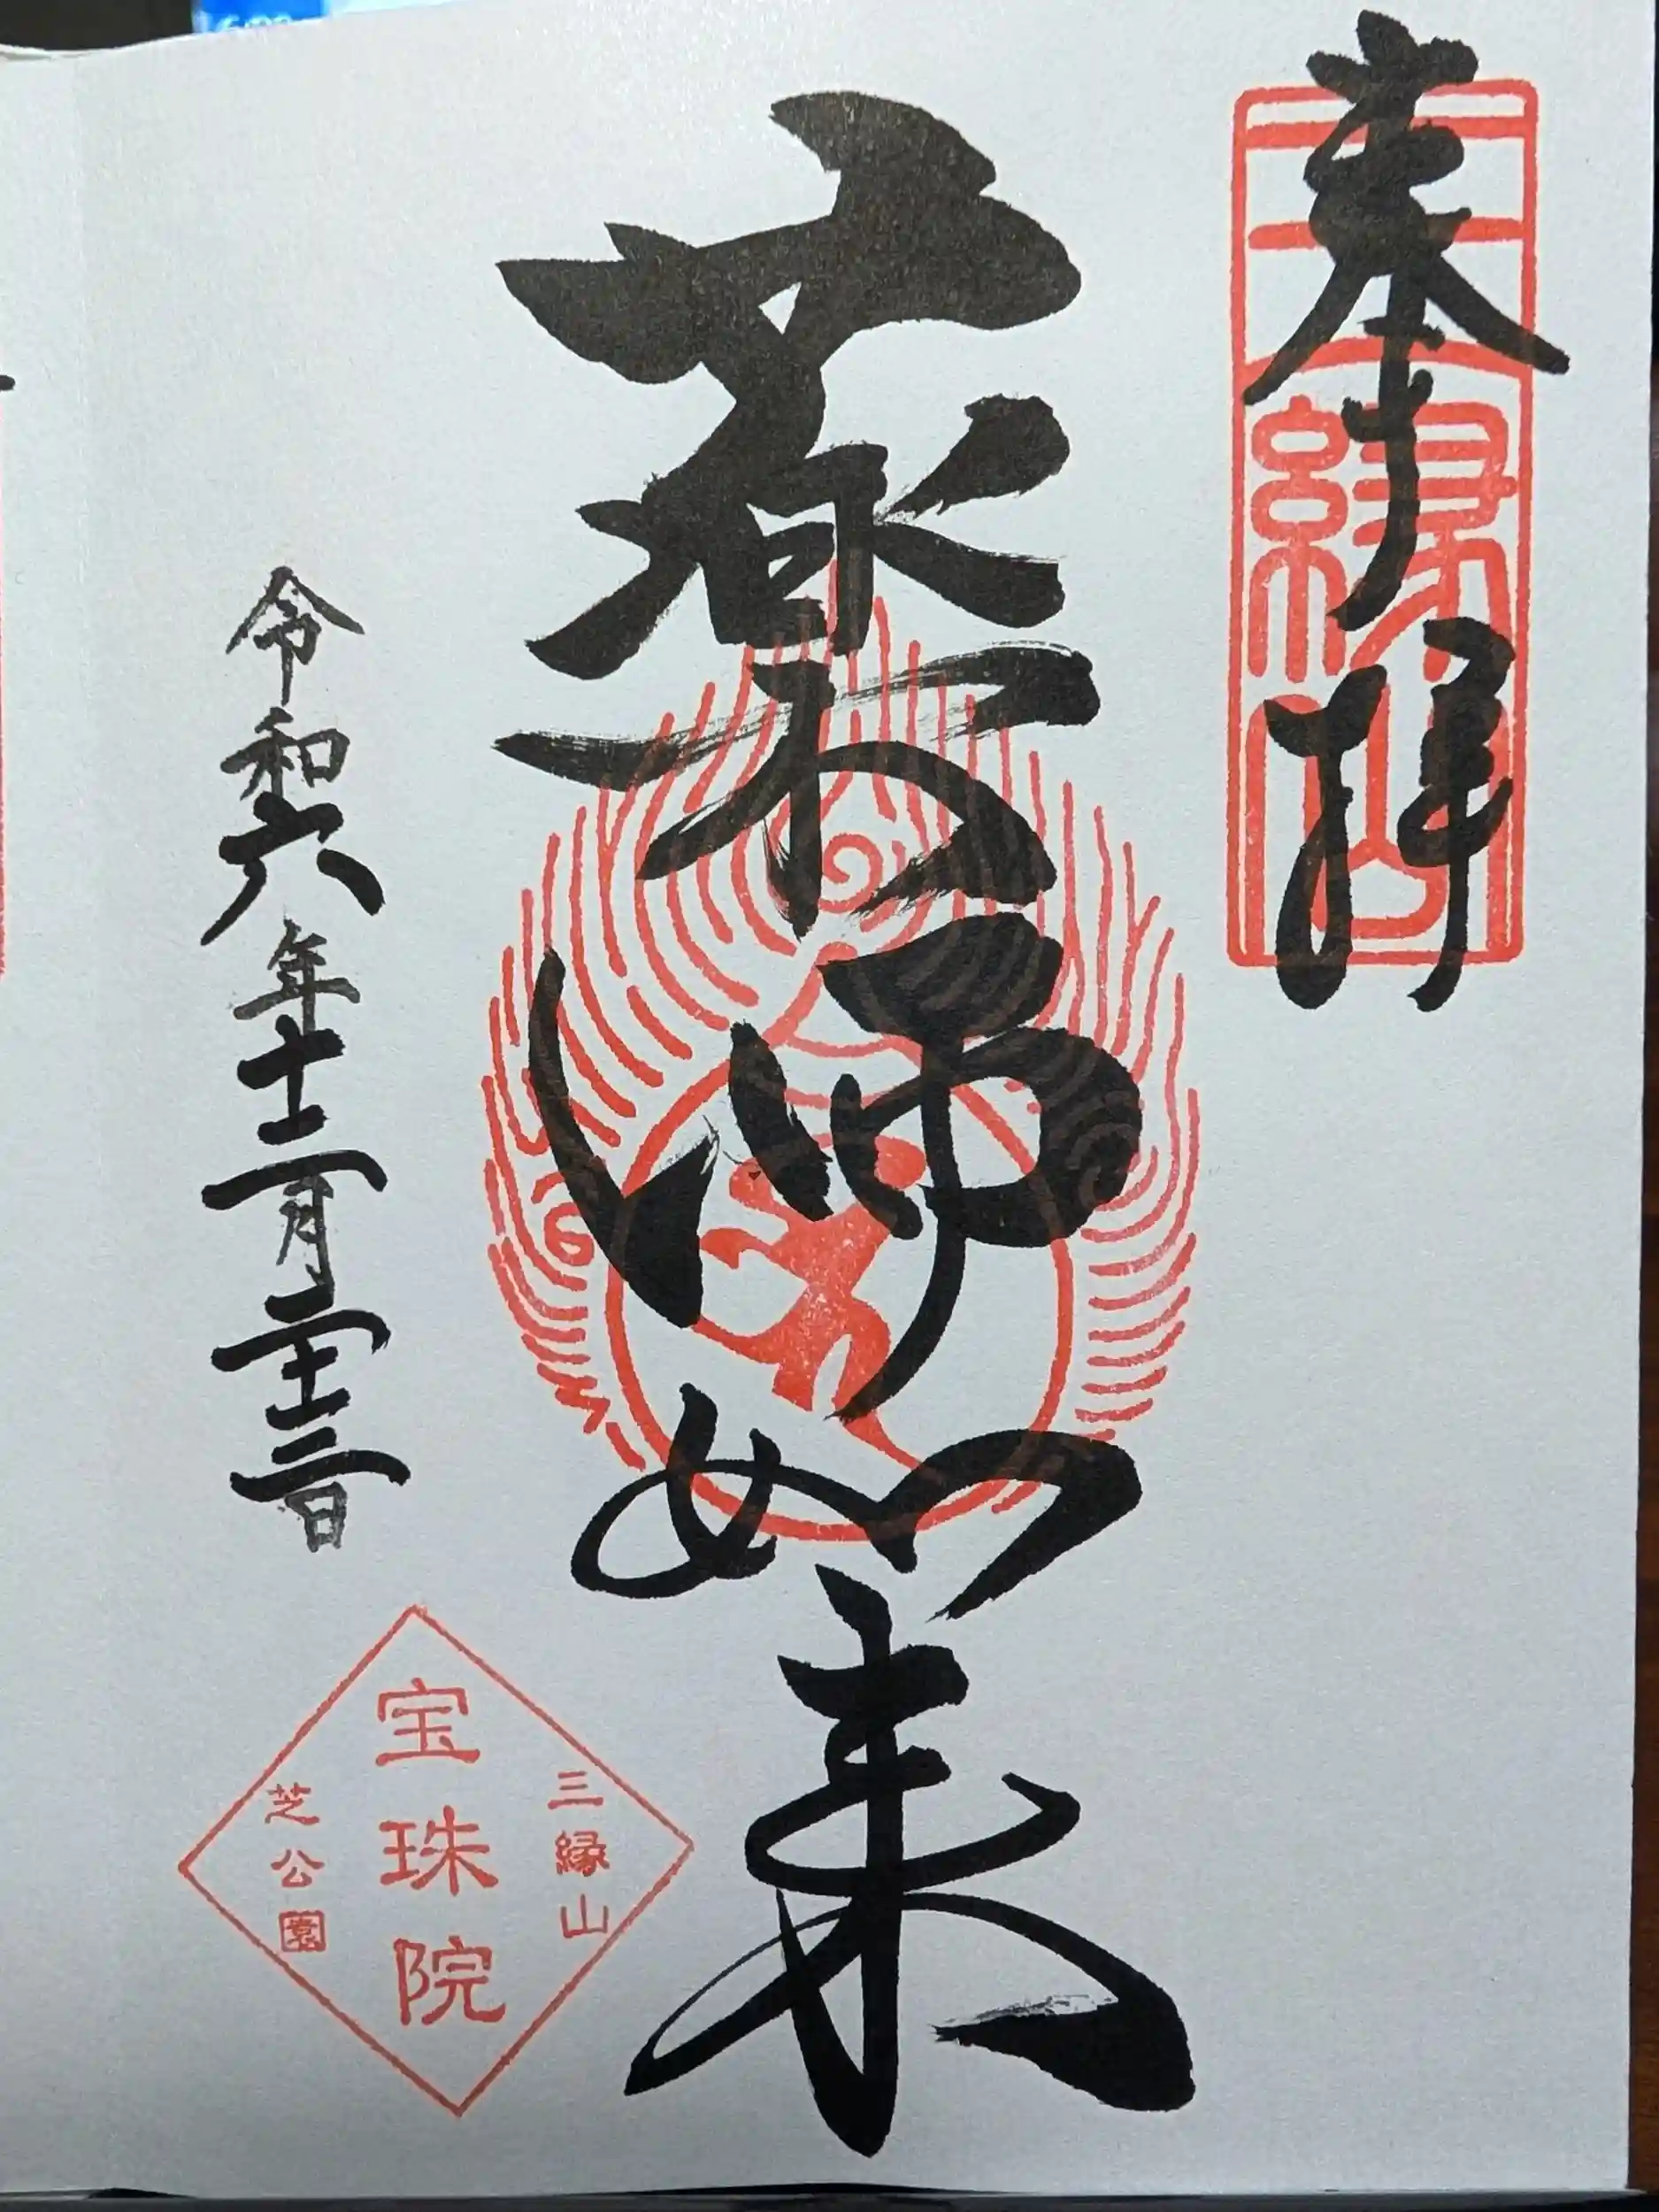 奉拝
三縁山
薬師如来
令和六年十二月二十三日
三縁山
宝珠院
芝公園